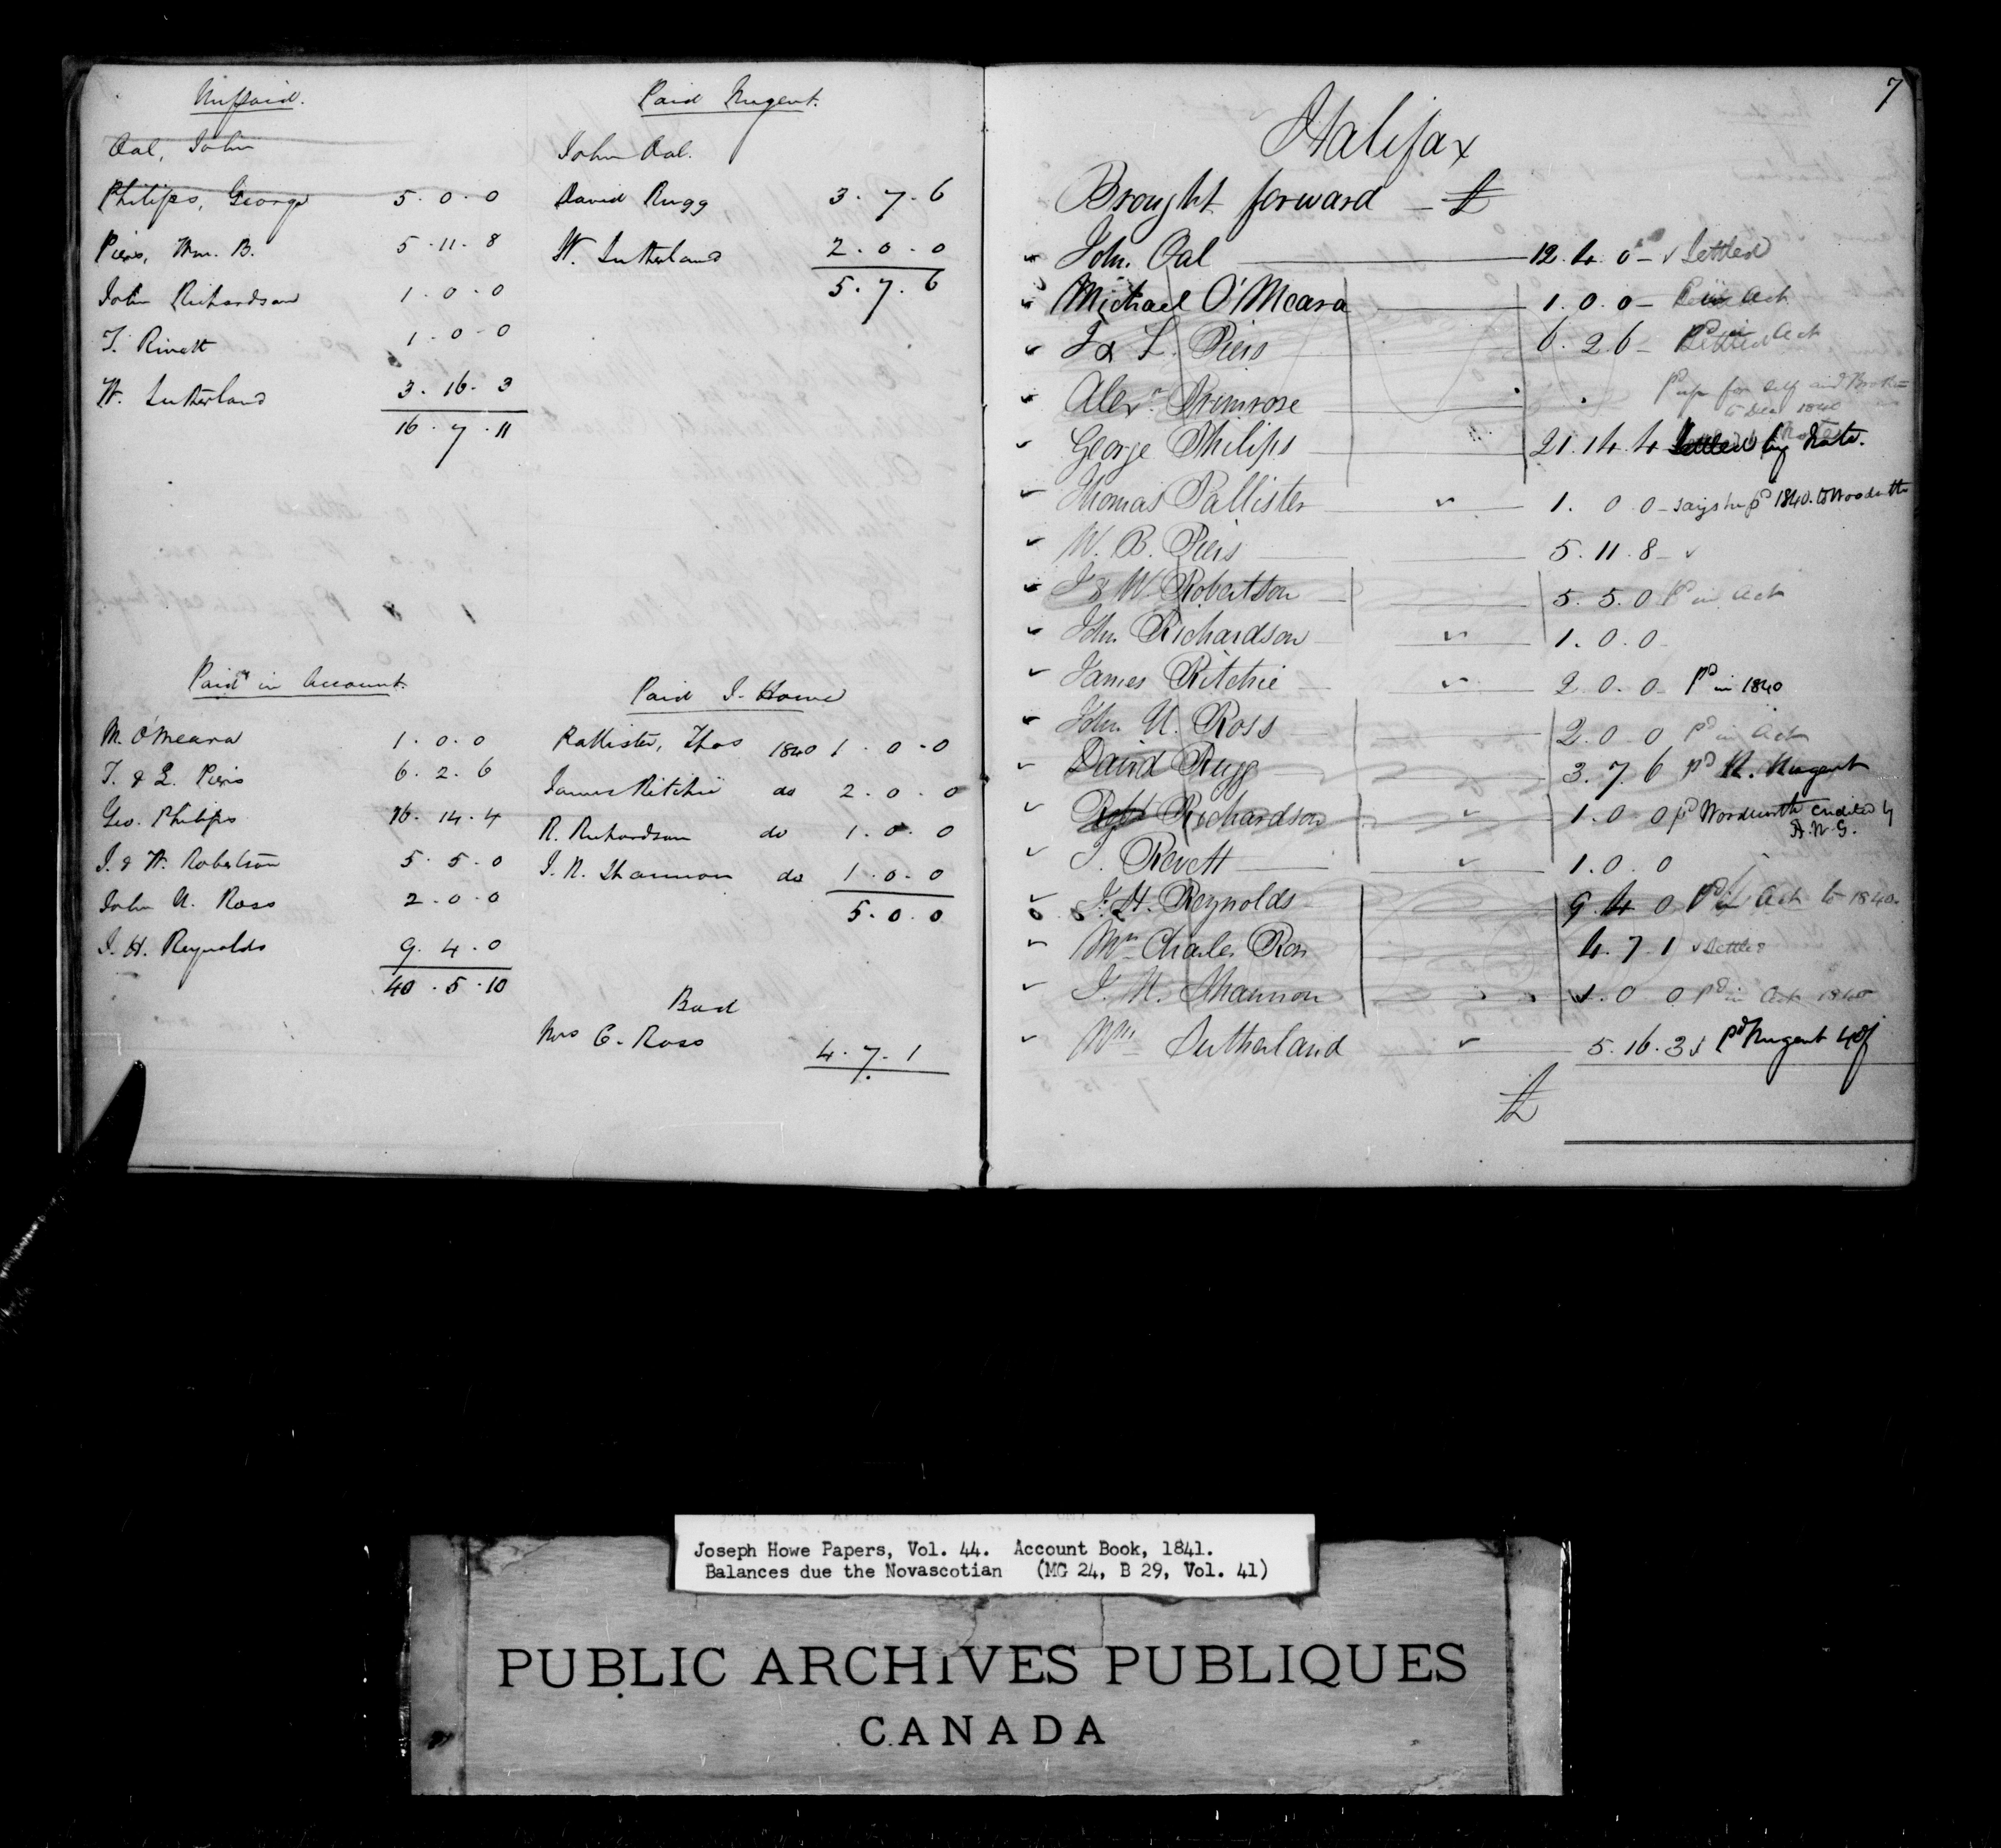 Unpaid.
Oal, John
Philips, George 5.0.0
Piers, Wm. B. 5.11.8
John Richardson 1.0.0
T. Rivett 1.0.0
W. Sutherland 3.16.3
16.7.11
Paid Nugent.
John Oal.
David Rugg 3.7.6
W. Sutherland 2.0.0
5.7.6
Paid in Account.
M. O'Meara 1.0.0
T. & L. Piers 6.2.6
Geo. Philips 16.14.4
J. & W. Robertson 5.5.0
John U. Ross 2.0.0
J. H. Reynolds 9.4.0
40.5.10
Paid J. Howe
Pallister, Thos 1840 1.0.0
James Ritchie do 2.0.0
R. Richardson do 1.0.0
J. N. Shannon do 1.0.0
5.0.0
Bad
Mrs C. Ross 4.7.1
7
Halifax
Brought forward £
John Oal 12.4.0 Settled
Michael O'Meara 1.0.0 Act
T & L. Piers 6.2.6 Pd in Act
Alexr. Primrose for self and to Decr 1840
George Philips 21.14.4 Settled by Note.
Thomas Pallister 1.0.0 says he pd 1840. to Woodworth
W. B. Piers 5.11.8
J & W Robertson 5.5.0 Pd in Act
John Richardson 1.0.0
James Ritchie 2.0.0 Pd in 1840
John U. Ross 2.0.0 Pd in Act
David Rugg 3.7.6 pd R. Nugent
Robt Richardson 1.0.0 pd Wordworth credited by
A.W.G.
T. Revett 1.0.0
J. H. Reynolds 9.4.0 Pd in Act to 1840.
Mrs Charles Ross 4.7.1 Settled
J. N. Shannon 1.0.0 Pd in Act 1840
Wm Sutherland 5.16.3 Pd Nugent 40/
£
Joseph Howe Papers, Vol. 44. Account Book, 1841.
Balances due the Novascotian (MG 24, B 29, Vol. 41)
PUBLIC ARCHIVES PUBLIQUES
CANADA